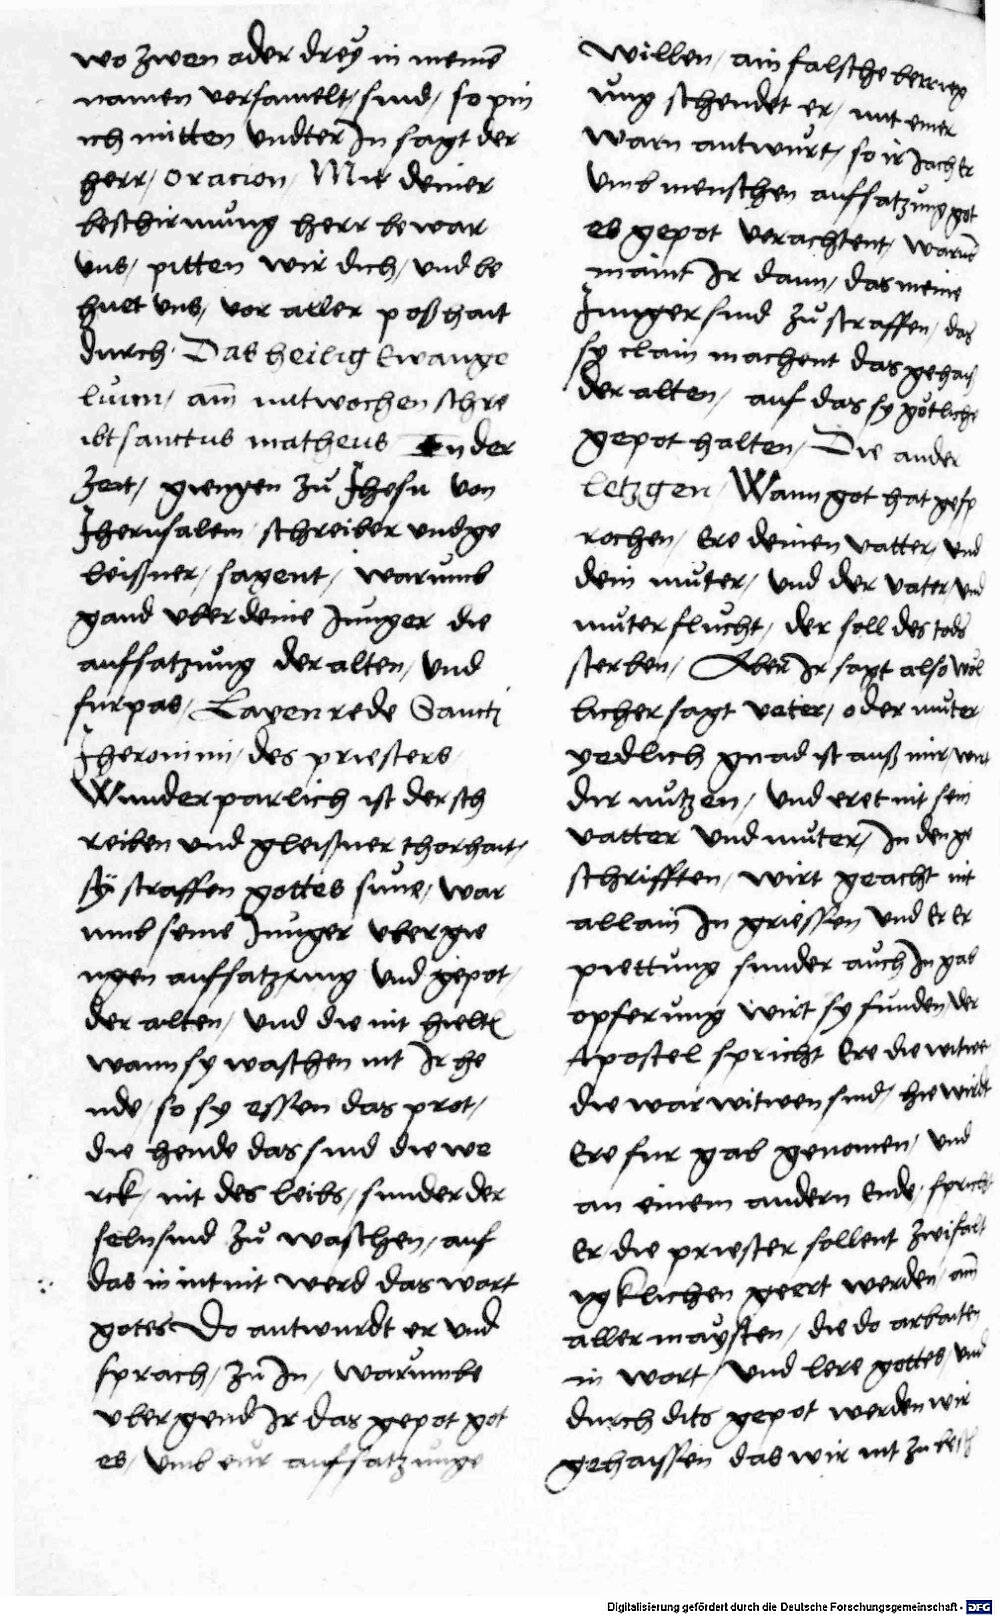 wo zwen oder drey in meinē
namen versamelt, sind, so pin
ich mitten vndter In sagt der
herr, Oracion, Mit deiner
beschirmung herr bewar
vns, pitten wir dich, vnd be
huet vns, vor aller poßhait
durch. Das heilig Ewange
lium, am mitwochen schre
ibt sanctus matheus In der
zeit, giengen zů Jhesu von
Jherusalem schreiber vnd ge
leißner, sagent, warumb
gand vber deine Junger die
auffsatzung der alten, vnd
furpas, Layen rede Sancti
Jheronimi, des priesters,
Wunderparlich ist der sch
reiben vnd gleißner thorhait,
sy straffen gottes sune, war
umb seine Junger vbergie
ngen auffsatzung vnd gepot,
der alten, vnd die nit hieltē
wann sy waschen nit Ir he
nde, so sy essen das prot,
die hende das sind die we
rck, nit des leibs, sunder der
seln sind zů waschen, auf
das in in nit werd das wort
gotes Do antwurdt er vnd
sprach, zu In, warumbe
vbergend Ir das gepot got
es, vmb eur auffsatzunge
willen, ain falsche
ung schendet er, mit einer
warn antwurt, so ir
vmb menschen auffsatzung got
es gepot verachtent, warūb
maint Ir dann, das meine
Junger sind zů straffen, das
sy clain machent das gehaiß
der alten, auf das sy götliche
gepot halten, Die ander
letzgen, Wann got hat gesp
rochen, Ere deinen vatter, vnd
dein můter, vnd der vater, vnd
můter flucht, der soll des tods
sterben, Aber Ir sagt also wöl
licher sagt vater, oder můter,
yedlich gnad ist auß mir, wirt
dir nutzen, vnd eret nit sein
vatter vnd můter, In den ge
schrifften, wirt geacht nit
allain In griessen vnd Er er
piettung sunder auch In gab
opferung wirt sy funden, der
Apostel spricht Ere die witwe
die war witwen sind, hie wirdt
Ere fur gab genomen, vnd
an einem andern Ende, spricht
Er, die priester sollent zwifalt
igklichen geert werden, am
aller maysten, die do arbaiten
in wort, vnd lere gottes, vnd
durch dits gepot werden wir
gehaissen das wir nit zu
Digitalisierung gefördert durch die Deutsche Forschungsgemeinschaft - DFG